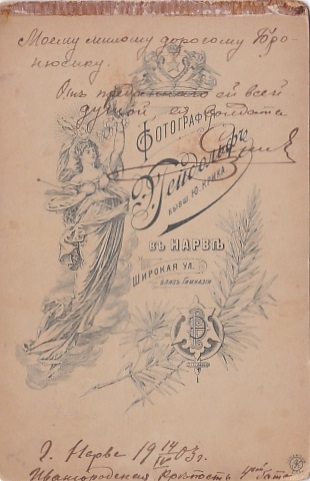 Моему милому дорогому Бро-
нюсику.
Отъ преданнаго ей всей
душой ея солдата
Фотографія
Гейдельфъ
бывш. Ю. Крика
въ Нарвѣ
Широкая ул.
близъ Гимназіи
г. Нарва 19 14/IV 03 г.
Ивангородская крѣпость